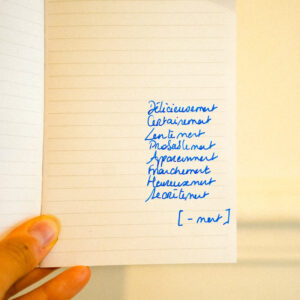 Délicieusement
Certainement
Lentement
Probablement
Apparemment
Franchement
Heureusement
Secrètement
[-ment]